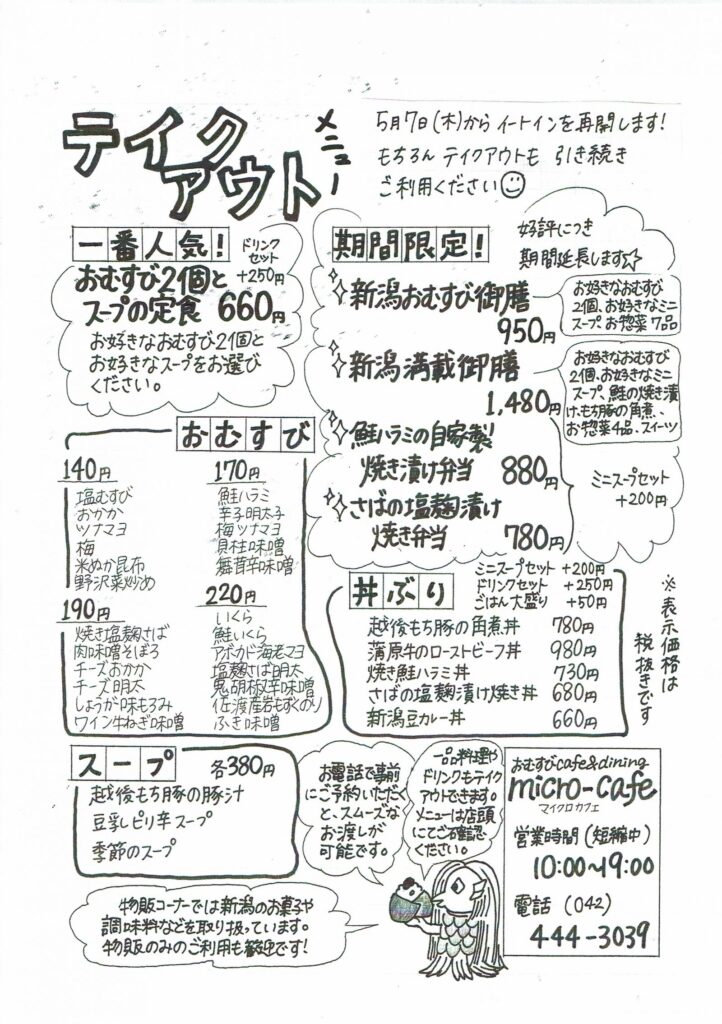 テイクアウト メニュー
5月7日(木)から イートインを再開します!
もちろん テイクアウトも 引き続き
ご利用ください
一番人気!
ドリンク
セット
+250円
おむすび2個と
スープの定食 660円
お好きなおむすび2個と
お好きなスープをお選び
ください。
期間限定!
好評につき
期間延長します☆
新潟おむすび御膳
950円
お好きなおむすび
2個、お好きなミニ
スープ、お惣菜7品
新潟満載御膳
1,480円
お好きなおむすび
2個、お好きなミニ
スープ、鮭の焼き漬
け、もち豚の角煮、
お惣菜4品、スイーツ
鮭ハラミの自家製
焼き漬け弁当 880円
さばの塩麹漬け
焼き弁当 780円
ミニスープセット
+200円
おむすび
140円
塩むすび
おかか
ツナマヨ
梅
米ぬか昆布
野沢菜炒め
170円
鮭ハラミ
辛子明太子
梅ツナマヨ
貝柱味噌
舞茸辛味噌
190円
焼き塩麹さば
肉味噌そぼろ
チーズおかか
チーズ明太
しょうが味もろみ
ワイン牛ねぎ味噌
220円
いくら
鮭いくら
アボカド海老マヨ
塩麹さば明太
鬼胡桃辛味噌
佐渡産岩もずくのり
ふき味噌
丼ぶり
ミニスープセット +200円
ドリンクセット +250円
ごはん大盛り +50円
越後もち豚の角煮丼 780円
蒲原牛のローストビーフ丼 980円
焼き鮭ハラミ丼 730円
さばの塩麹漬け焼き丼 680円
新潟豆カレー丼 660円
※表示価格は
税抜きです
スープ 各380円
越後もち豚の豚汁
豆乳ピリ辛スープ
季節のスープ
お電話で事前
にご予約いただく
と、スムーズな
お渡しが
可能です。
一品料理や
ドリンクもテイク
アウトできます。
メニューは店頭
にてご確認
ください。
おむすびcafe&dining
micro-cafe
マイクロカフェ
営業時間(短縮中)
10:00~19:00
電話 (042)
444-3039
物販コーナーでは新潟のお菓子や
調味料などを取り扱っています。
物販のみのご利用も歓迎です!